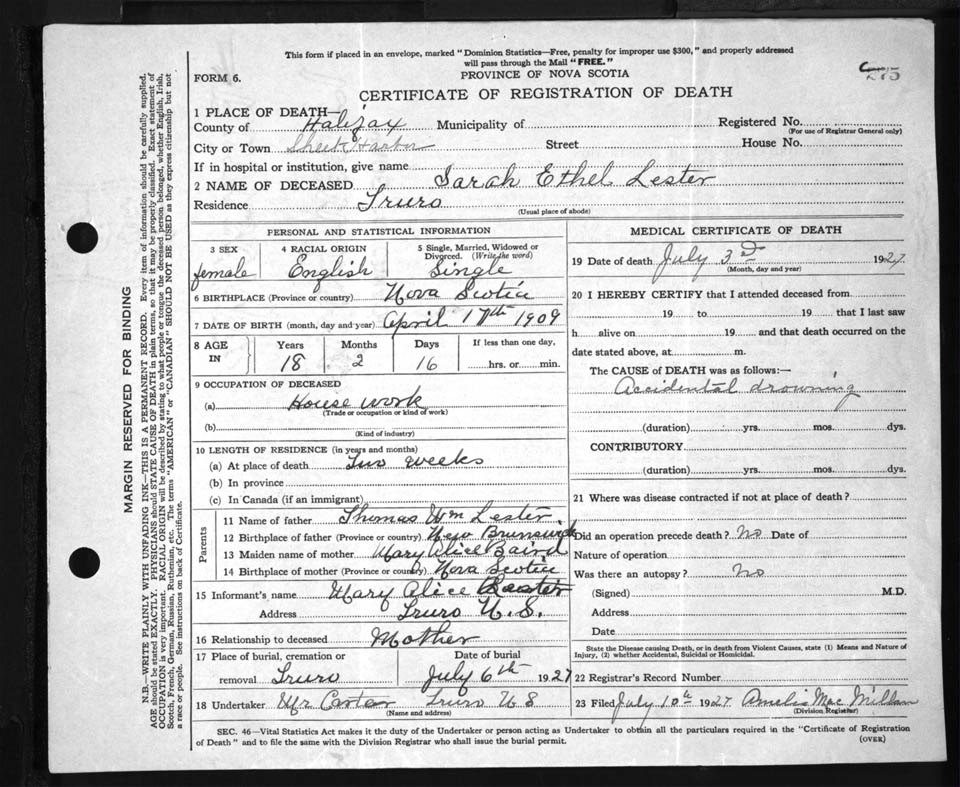 This form if placed in an envelope, marked "Dominion Statistics—Free, penalty for improper use $300," and properly addressed
will pass through the Mail "FREE."
FORM 6.
PROVINCE OF NOVA SCOTIA
275
CERTIFICATE OF REGISTRATION OF DEATH
1 PLACE OF DEATH—
County of Halifax Municipality of Registered No.
(For use of Registrar General only)
City or Town Sheet Harbor Street House No.
If in hospital or institution, give name
2 NAME OF DECEASED Sarah Ethel Lester
Residence Truro
(Usual place of abode)
PERSONAL AND STATISTICAL INFORMATION
3 SEX 4 RACIAL ORIGIN 5 Single, Married, Widowed or
Divorced. (Write the word)
female English Single
6 BIRTHPLACE (Province or country) Nova Scotia
7 DATE OF BIRTH (month, day and year) April 17th 1909
8 AGE IN Years Months Days If less than one day,
18 2 16 hrs. or min.
9 OCCUPATION OF DECEASED
(a) House work
(Trade or occupation or kind of work)
(b)
(Kind of industry)
10 LENGTH OF RESIDENCE (in years and months)
(a) At place of death Two weeks
(b) In province
(c) In Canada (if an immigrant)
Parents
11 Name of father Thomas Wm Lester
12 Birthplace of father (Province or country) New Brunswick
13 Maiden name of mother Mary Alice Baird
14 Birthplace of mother (Province or country) Nova Scotia
15 Informant's name Mary Alice
Address Truro N.S.
16 Relationship to deceased Mother
17 Place of burial, cremation or Date of burial
removal Truro July 6th 1927
18 Undertaker Mr Carter Truro N S
(Name and address)
MEDICAL CERTIFICATE OF DEATH
19 Date of death July 3rd 1927
(Month, day and year)
20 I HEREBY CERTIFY that I attended deceased from
19 to 19 that I last saw
h alive on 19 and that death occurred on the
date stated above, at m.
The CAUSE of DEATH was as follows:—
Accidental drowning
(duration) yrs. mos. dys.
CONTRIBUTORY
(duration) yrs. mos. dys.
21 Where was disease contracted if not at place of death?
Did an operation precede death? No Date of
Nature of operation
Was there an autopsy? No
(Signed) M.D.
Address
Date
State the Disease causing Death, or in death from Violent Causes, state (1) Means and Nature of
Injury, (2) whether Accidental, Suicidal or Homicidal.
22 Registrar's Record Number
23 Filed July 10th 1927 Amelia MacMillan
(Division Registrar)
SEC. 46—Vital Statistics Act makes it the duty of the Undertaker or person acting as Undertaker to obtain all the particulars required in the "Certificate of Registration
of Death" and to file the same with the Division Registrar who shall issue the burial permit.
(OVER)
MARGIN RESERVED FOR BINDING
N.B.—WRITE PLAINLY WITH UNFADING INK—THIS IS A PERMANENT RECORD. Every item of information should be carefully supplied.
AGE should be stated EXACTLY. PHYSICIANS should STATE CAUSE OF DEATH in plain terms, so that it may be properly classified. Exact statement of
OCCUPATION is very important. RACIAL ORIGIN will be described by stating to what people or tongue the deceased person belonged, whether English, Irish,
Scotch, French, German, Russian, Ruthenian, etc. The terms "AMERICAN" or "CANADIAN" SHOULD NOT BE USED as they express citizenship but not
a race or people. See instructions on back of Certificate.